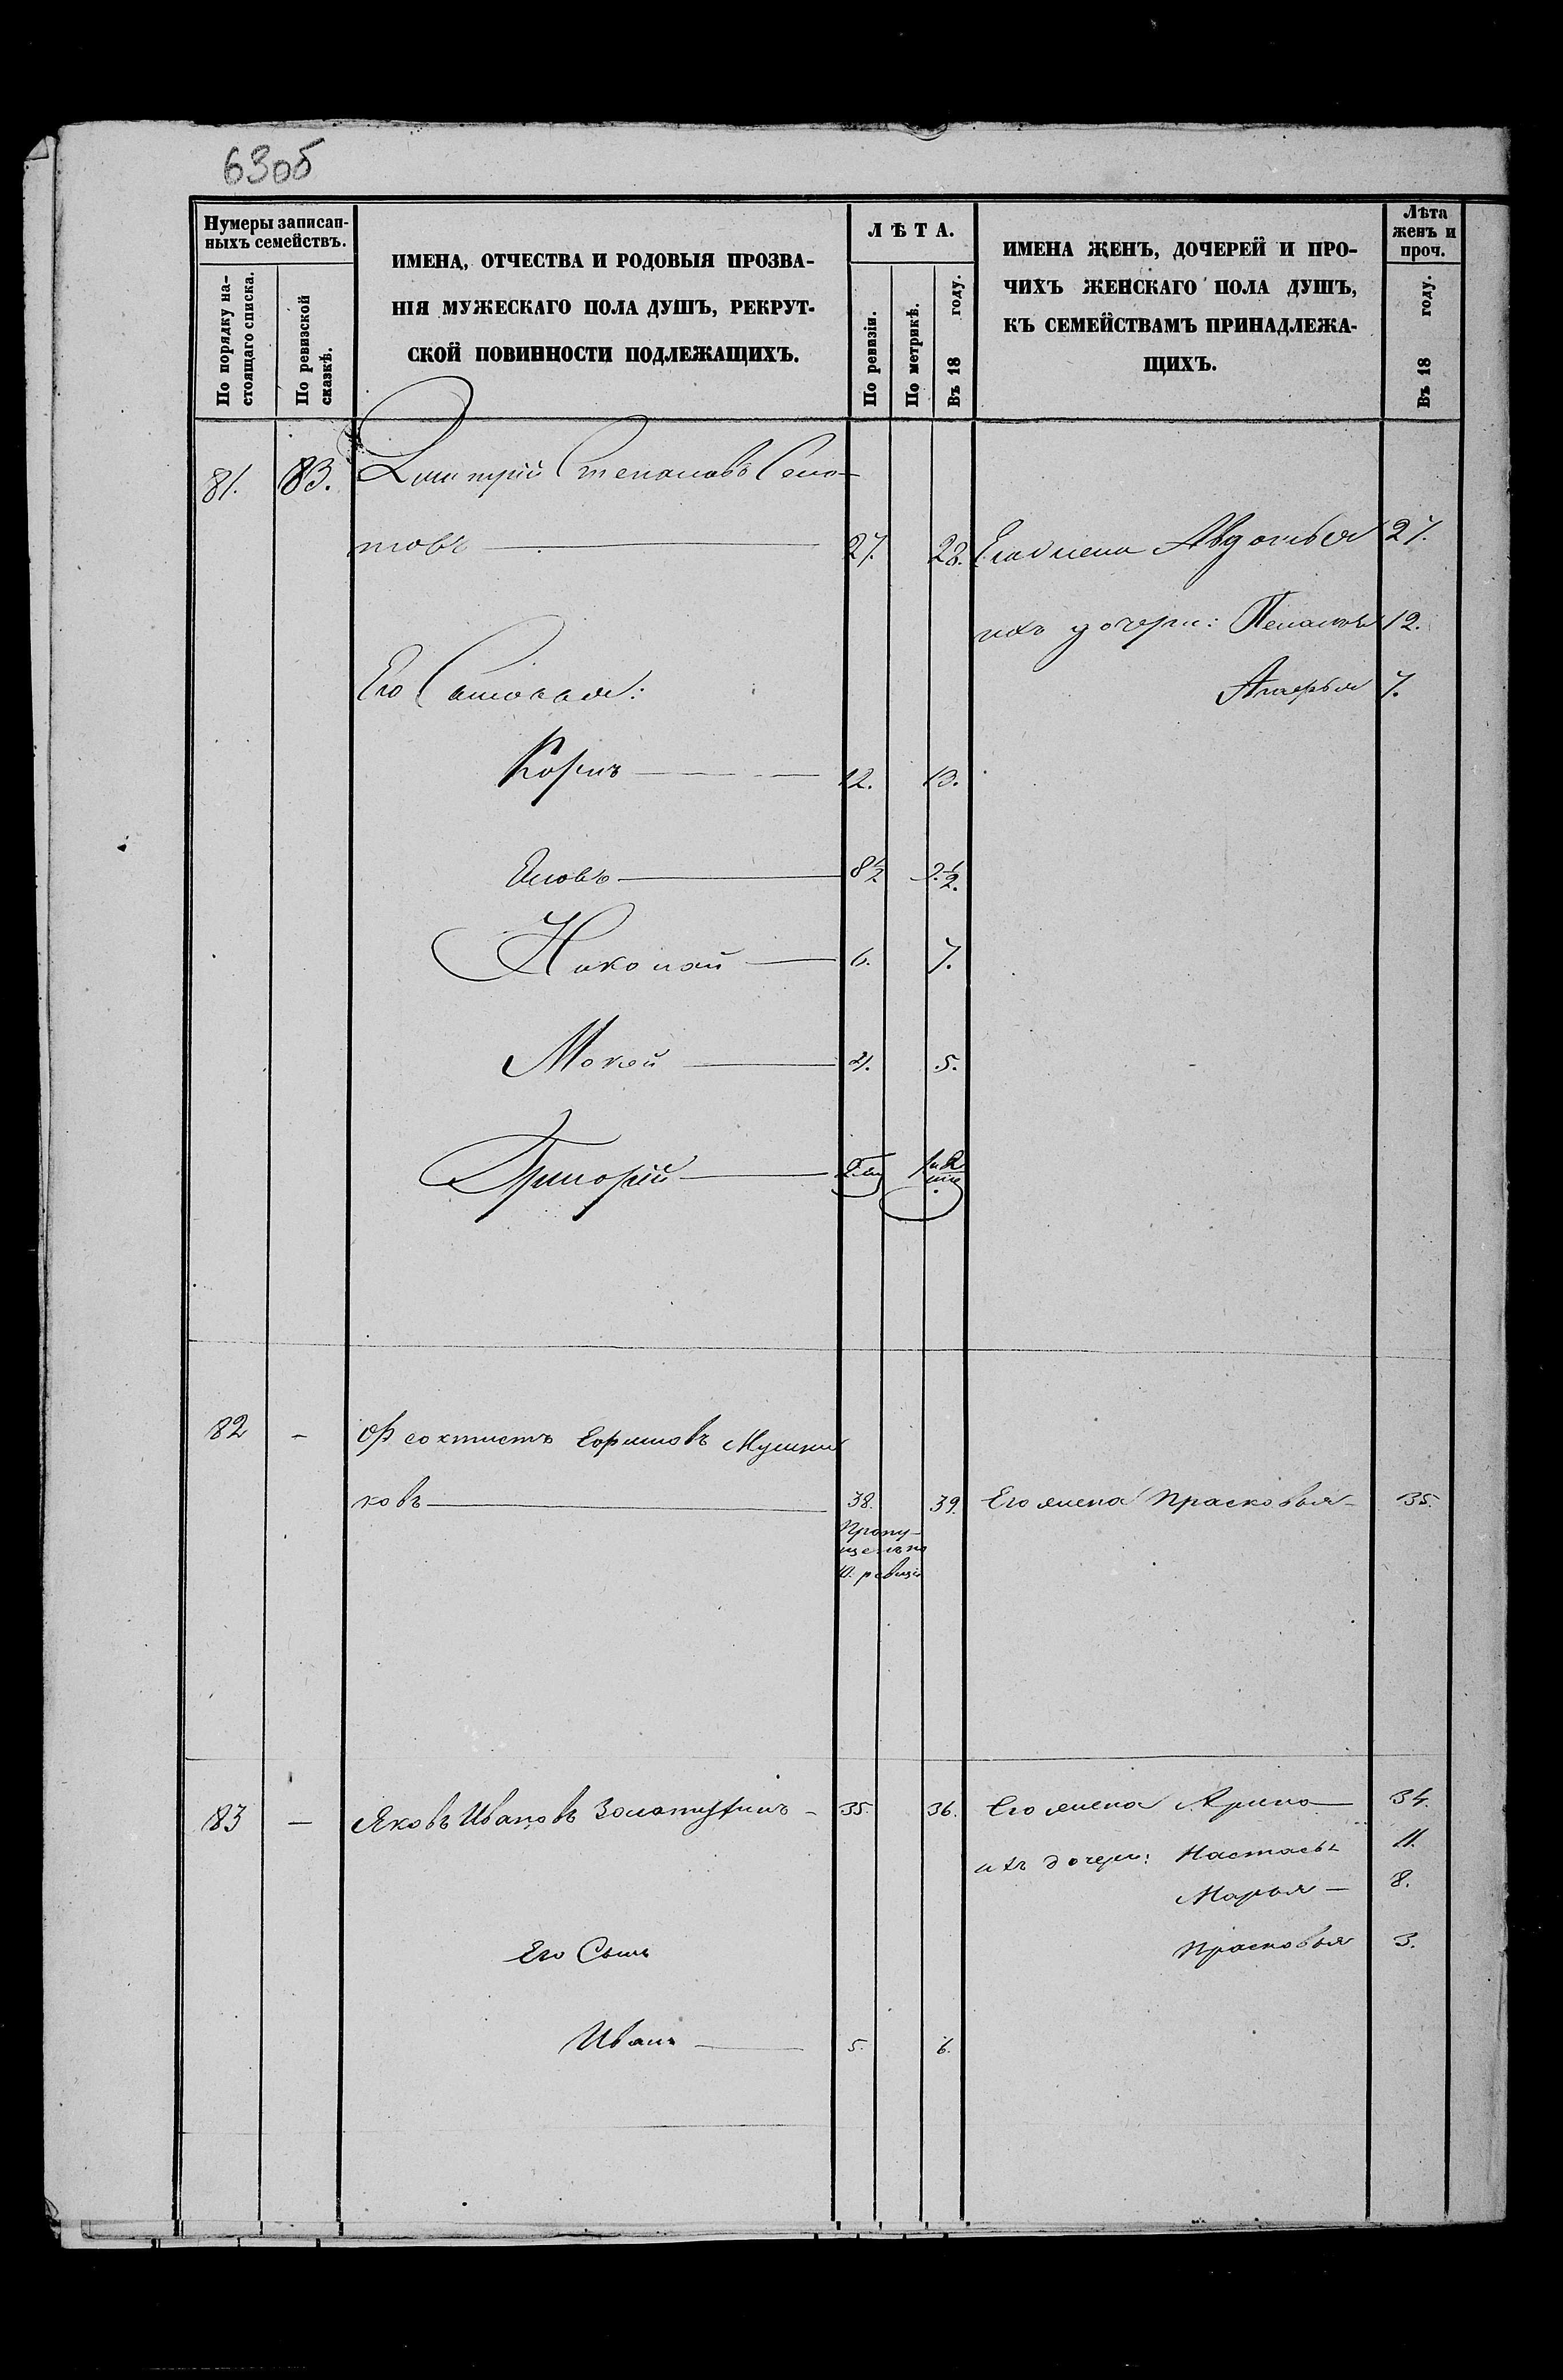 63об
Нумеры записан-
ныхъ семействъ.
По порядку на-
стоящаго списка.
По ревизской
сказкѣ.
ИМЕНА, ОТЧЕСТВА И РОДОВЫЯ ПРОЗВА-
НІЯ МУЖЕСКАГО ПОЛА ДУШЪ, РЕКРУТ-
СКОЙ ПОВИННОСТИ ПОДЛЕЖАЩИХЪ.
ЛѢТА.
По ревизіи.
По метрикѣ.
Въ 18 году.
ИМЕНА ЖЕНЪ, ДОЧЕРЕЙ И ПРО-
ЧИХЪ ЖЕНСКАГО ПОЛА ДУШЪ,
КЪ СЕМЕЙСТВАМЪ ПРИНАДЛЕЖА-
ЩИХЪ.
Лѣта
женъ и
проч.
Въ 18 году.
81. 83. Дмитрій Степановъ
27. 28. Его жена Авдотья 27.
ихъ дочери: 12.
Его 7.
12. 13.
Яковъ 8½ 9½.
Николай 6. 7.
Мокей 4. 5.
Григорій
82 - Ѳеоктистъ
ковъ 38. 39. Его жена Прасковья 35.
Пропу-
щенъ по
ревизіи
83 - Яковъ Ивановъ 35. 36. Его жена Арина 34.
ихъ дочери: Настасья 11.
Марья 8.
Его Сынъ Прасковья 3.
Иванъ 5. 6.